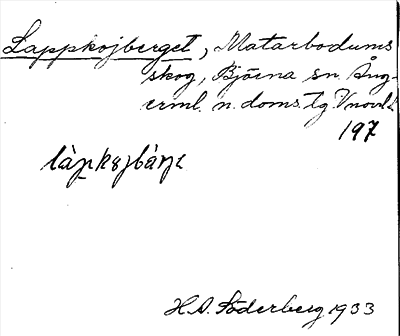 Lappkojberget, Matarbodums
skog, Björna sn. Ång-
erml. n. doms. tg. V norrl.
197
làpkojbàrjɛ
H.A. Söderberg 1933